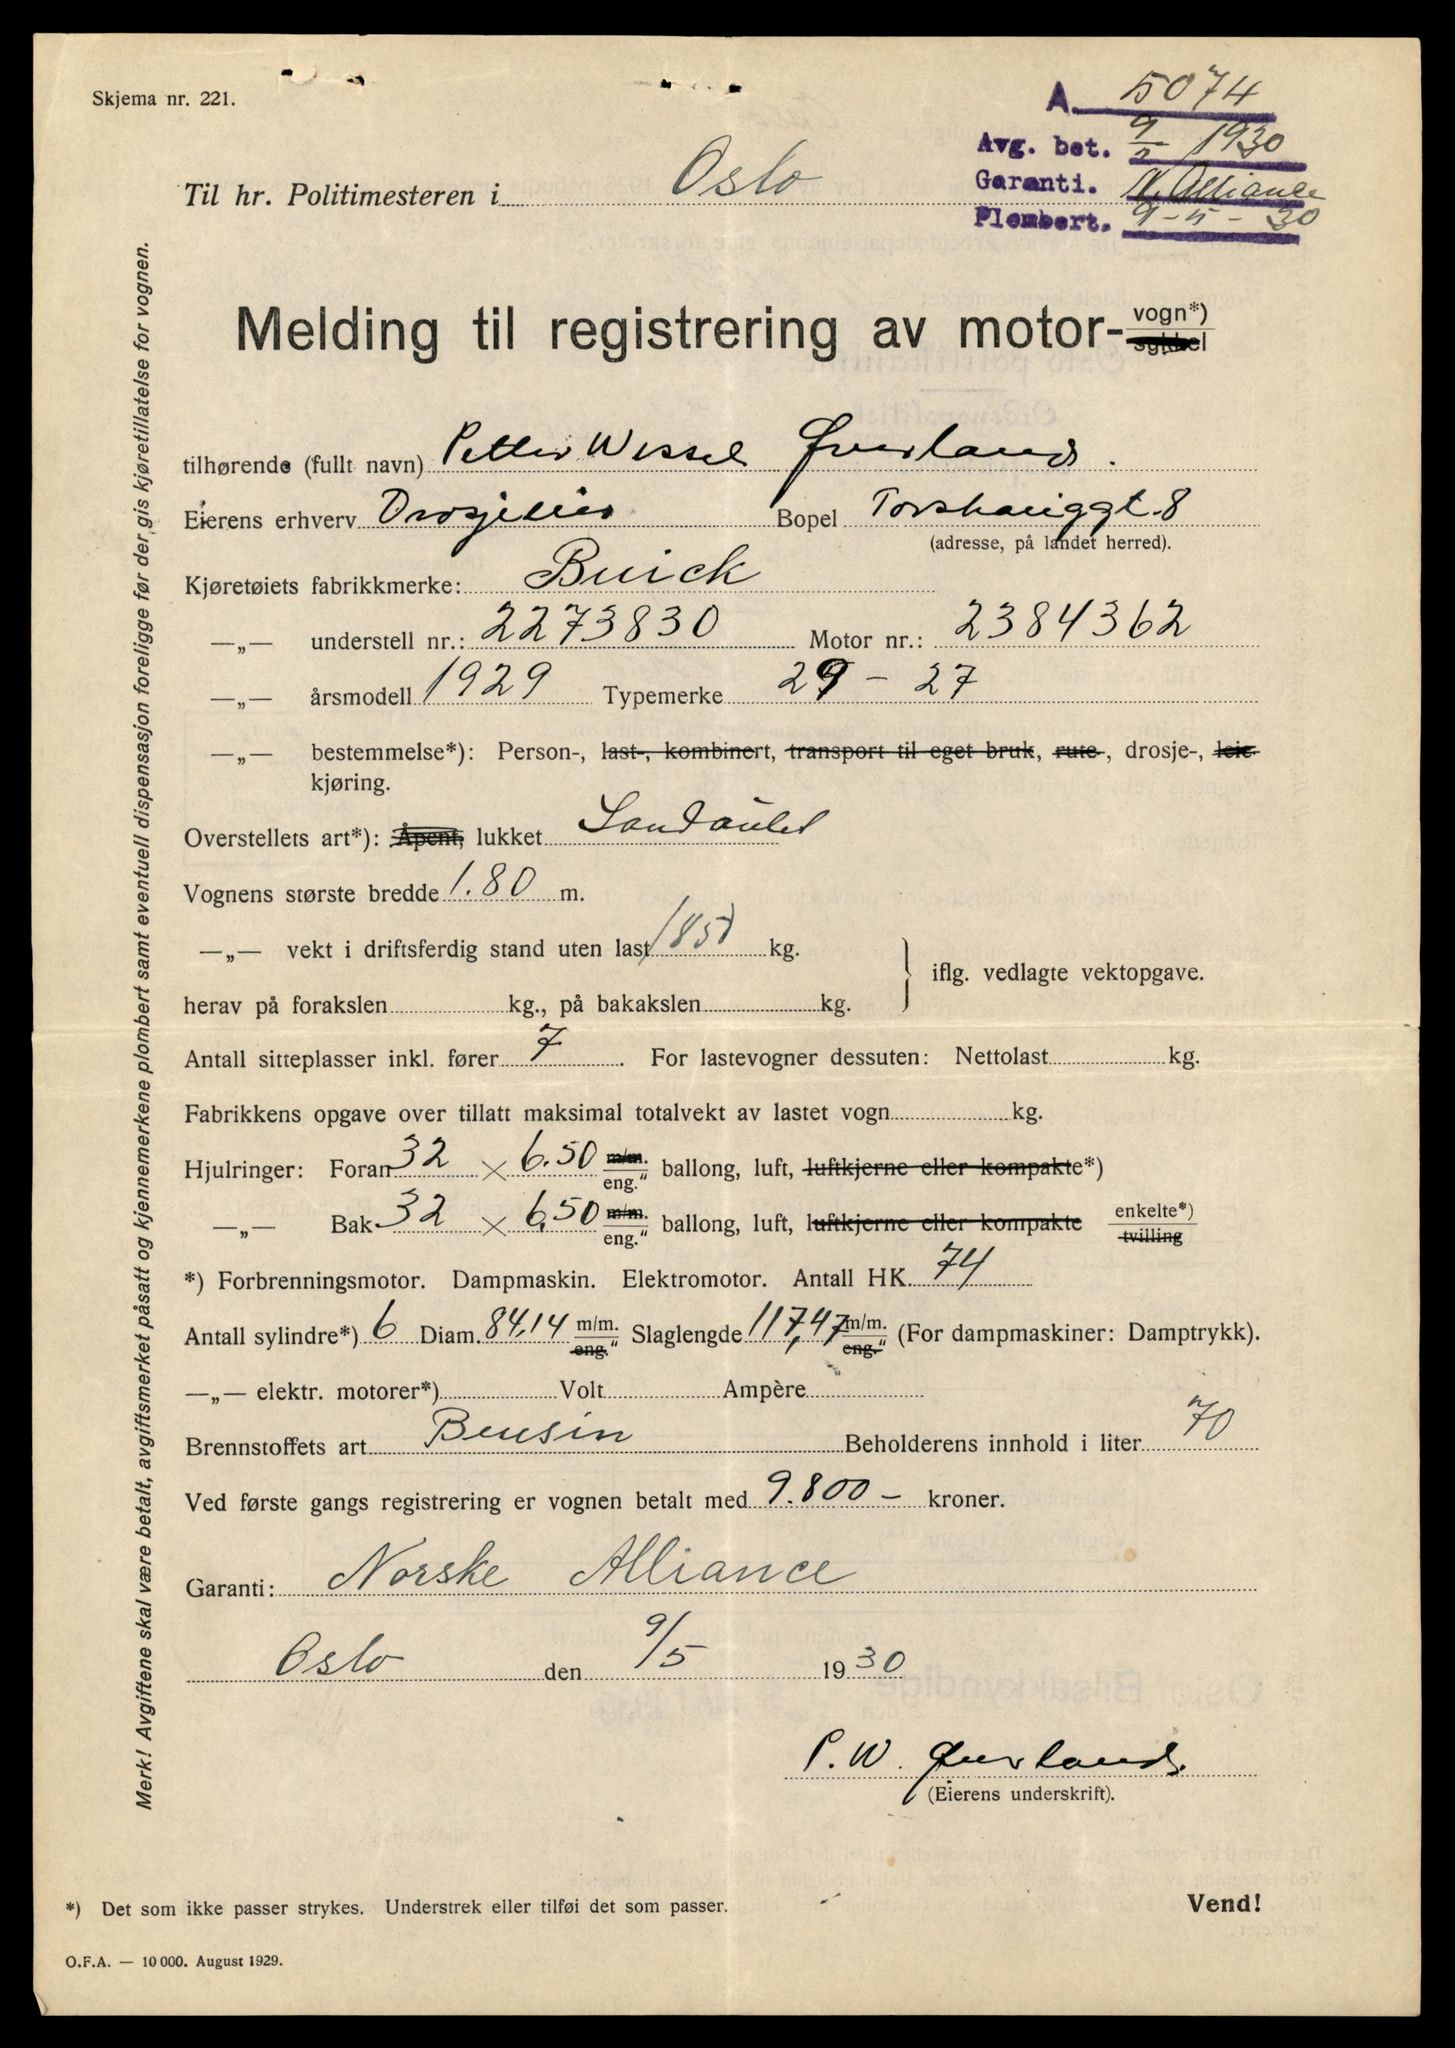 Skjema nr. 221.
A. 5074
Avg. bet. 9/5 1930
Garanti. N. Alliance
Plombert. 9-5-30
Til hr. Politimesteren i Oslo
Melding til registrering av motor-vogn*)
sykkel
tilhørende (fullt navn) Petter Wessel Øverland.
Eierens erhverv Drosjeeier Bopel Torshauggt. 8
(adresse, på landet herred).
Kjøretøiets fabrikkmerke: Buick
—„— understell nr.: 2273830 Motor nr.: 2384362
—„— årsmodell 1929 Typemerke 29 - 27
—„— bestemmelse*): Person-, last-, kombinert, transport til eget bruk, rute-, drosje-, leie-
kjøring.
Overstellets art*): Åpent, lukket Landaulet
Vognens største bredde 1.80 m.
—„— vekt i driftsferdig stand uten last 1850 kg.
iflg. vedlagte vektopgave.
herav på forakslen kg., på bakakslen kg.
Antall sitteplasser inkl. fører 7. For lastevogner dessuten: Nettolast kg.
Fabrikkens opgave over tillatt maksimal totalvekt av lastet vogn kg.
Hjulringer: Foran 32 × 6.50 m/m. eng." ballong, luft, luftkjerne eller kompakte*)
—„— Bak 32 × 6.50 m/m. eng." ballong, luft, luftkjerne eller kompakte enkelte*) tvilling
*) Forbrenningsmotor. Dampmaskin. Elektromotor. Antall HK. 74
Antall sylindre*) 6 Diam. 84,14 m/m. eng." Slaglengde 117,47 m/m. eng." (For dampmaskiner: Damptrykk).
—„— elektr. motorer*) Volt Ampère
Brennstoffets art Bensin Beholderens innhold i liter 70
Ved første gangs registrering er vognen betalt med 9.800 - kroner.
Garanti: Norske Alliance
Oslo den 9/5 1930
P. W. Øverland.
(Eierens underskrift).
*) Det som ikke passer strykes. Understrek eller tilføi det som passer.
Vend!
O.F.A. — 10 000. August 1929.
Merk! Avgiftene skal være betalt, avgiftsmerket påsatt og kjennemerkene plombert samt eventuell dispensasjon foreligge før der gis kjøretillatelse for vognen.